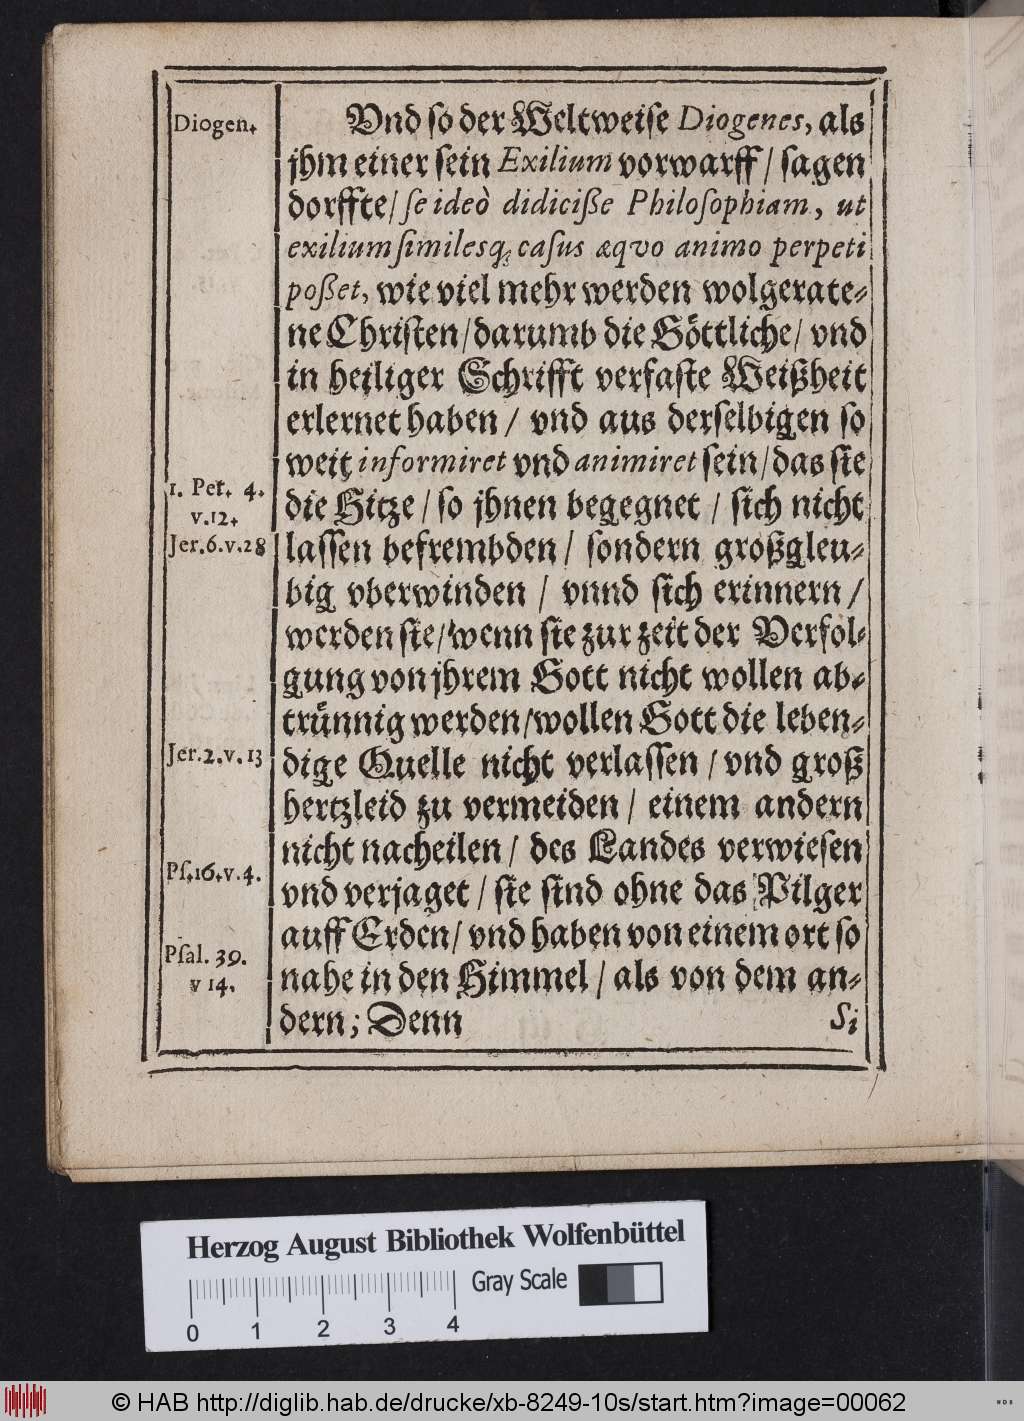 Diogen.
Vnd so der Weltweise Diogenes, als
jhm einer sein Exilium vorwarff / sagen
dorffte / ſe ideò didiciße Philoſophiam, ut
exilium ſimilesq; caſus æqvo animo perpeti
poßet, wie viel mehr werden wolgerate-
ne Christen / darumb die Göttliche / vnd
in heiliger Schrifft verfaste Weißheit
erlernet haben / vnd aus derselbigen so
weit informiret vnd animiret sein / das sie
1. Pet. 4.
v. 12.
die Hitze / so jhnen begegnet / sich nicht
Jer. 6. v. 28
lassen befrembden / sondern großgleu-
big vberwinden / vnnd sich erinnern /
werden sie / wenn sie zur zeit der Verfol-
gung von jhrem Gott nicht wollen ab-
trünnig werden / wollen Gott die leben-
Jer. 2. v. 13
dige Quelle nicht verlassen / vnd groß
hertzleid zu vermeiden / einem andern
nicht nacheilen / des Landes verwiesen
Pſ. 16. v. 4.
vnd verjaget / sie sind ohne das Pilger
auff Erden / vnd haben von einem ort so
Pſal. 39.
v 14.
nahe in den Himmel / als von dem an-
dern; Denn
Si
Herzog August Bibliothek Wolfenbüttel
Gray Scale
0 1 2 3 4
© HAB http://diglib.hab.de/drucke/xb-8249-10s/start.htm?image=00062